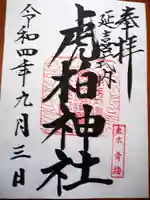 奉拝
延喜式内
虎柏神社
東京青梅
令和四年九月三日